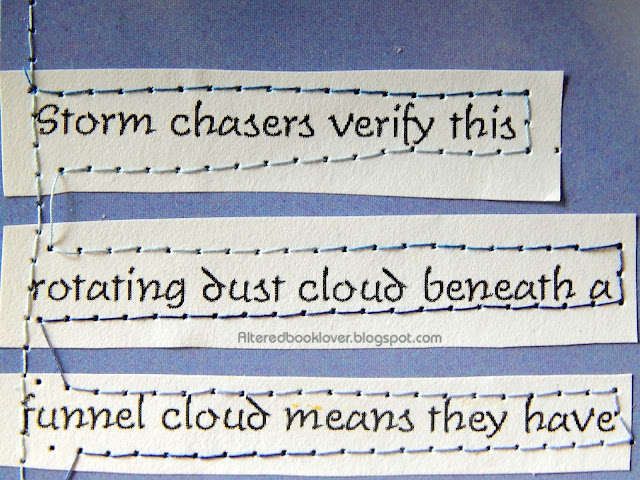 Storm chasers verify this
rotating dust cloud beneath a
Alteredbooklover.blogspot.com
funnel cloud means they have